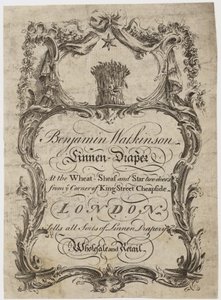 Benjamin Watkinson
Linnen-Draper
At the Wheat Sheaf and Star two doors
from ye Corner of King Street Cheapside
LONDON
Sells all Sorts of Linnen Drapery
Wholesale and Retail